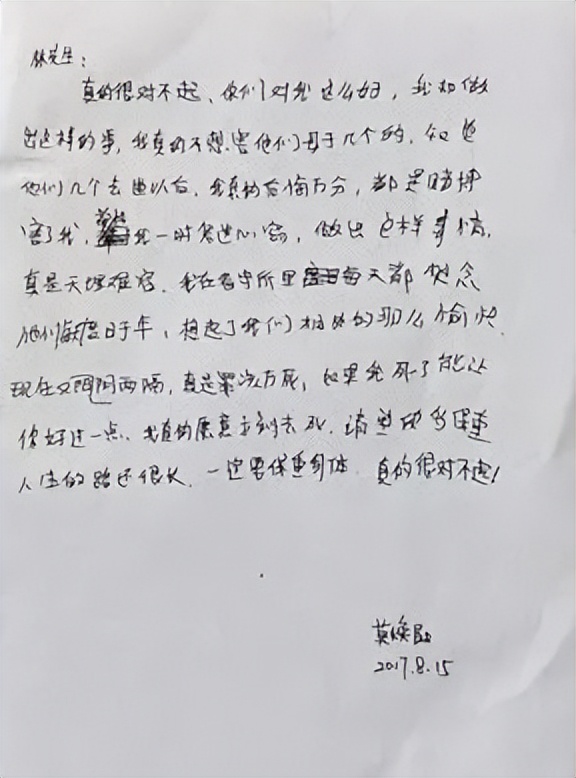 林先生：
真的很对不起、你们对我这么好，我却做
出这样的事，我真的不想害他们母子几个的，知道
他们几个去世以后，我真的后悔万分，都是赌博
害了我，我一时鬼迷心窍，做出这样事情，
真是天理难容，我在看守所里每天都想念
他们，度日如年，想起了我们相处的那么愉快
现在又阴阳两隔，真是罪该万死，如果我死了能让
你好过一点、我真的愿意立刻去死，请您多保重
人生的路还很长，一定要保重身体，真的很对不起！
莫焕晶
2017.8.15